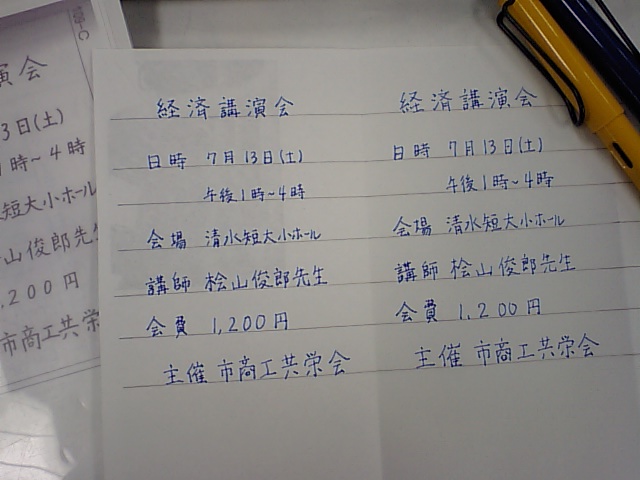 経済講演会
日時 7月13日(土)
午後1時~4時
会場 清水短大小ホール
講師 桧山俊郎先生
会費 1,200円
主催 市商工共栄会
経済講演会
日時 7月13日(土)
午後1時~4時
会場 清水短大小ホール
講師 桧山俊郎先生
会費 1,200円
主催 市商工共栄会
演会
3日(土)
時~4時
短大小ホール
山俊郎先
200円
市商工共栄